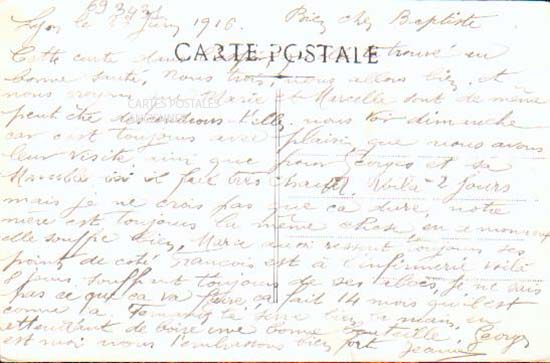 69343
Lyon le Juin 1916 Bien cher Baptiste
Cette carte trouve en
CARTE POSTALE
bonne santé, nous trois, nous allons bien, et
nous croyons Marie et Marcelle sont de même
CARTES POSTALES
peut être nous voir dimanche
car c'est toujours avec plaisir que nous avons
leur visite que pour Georges et sa
Marcelle ici il fait très chaud. Voilà 2 jours
mais je ne crois pas que ça dure, notre
mère est toujours la même chose, en ce moment
elle souffre bien, Marie aussi ressent toujours ses
points de côté François est à l'infirmerie voilà
8 jours souffrant toujours de ses je ne sais
pas ce que ça va faire, ça fait 14 mois qu'il est
comme ça. Tommy te serre bien la main, en
attendant de boire une bonne bouteille. Georges
est moi nous t'embrassons bien fort Jeanne